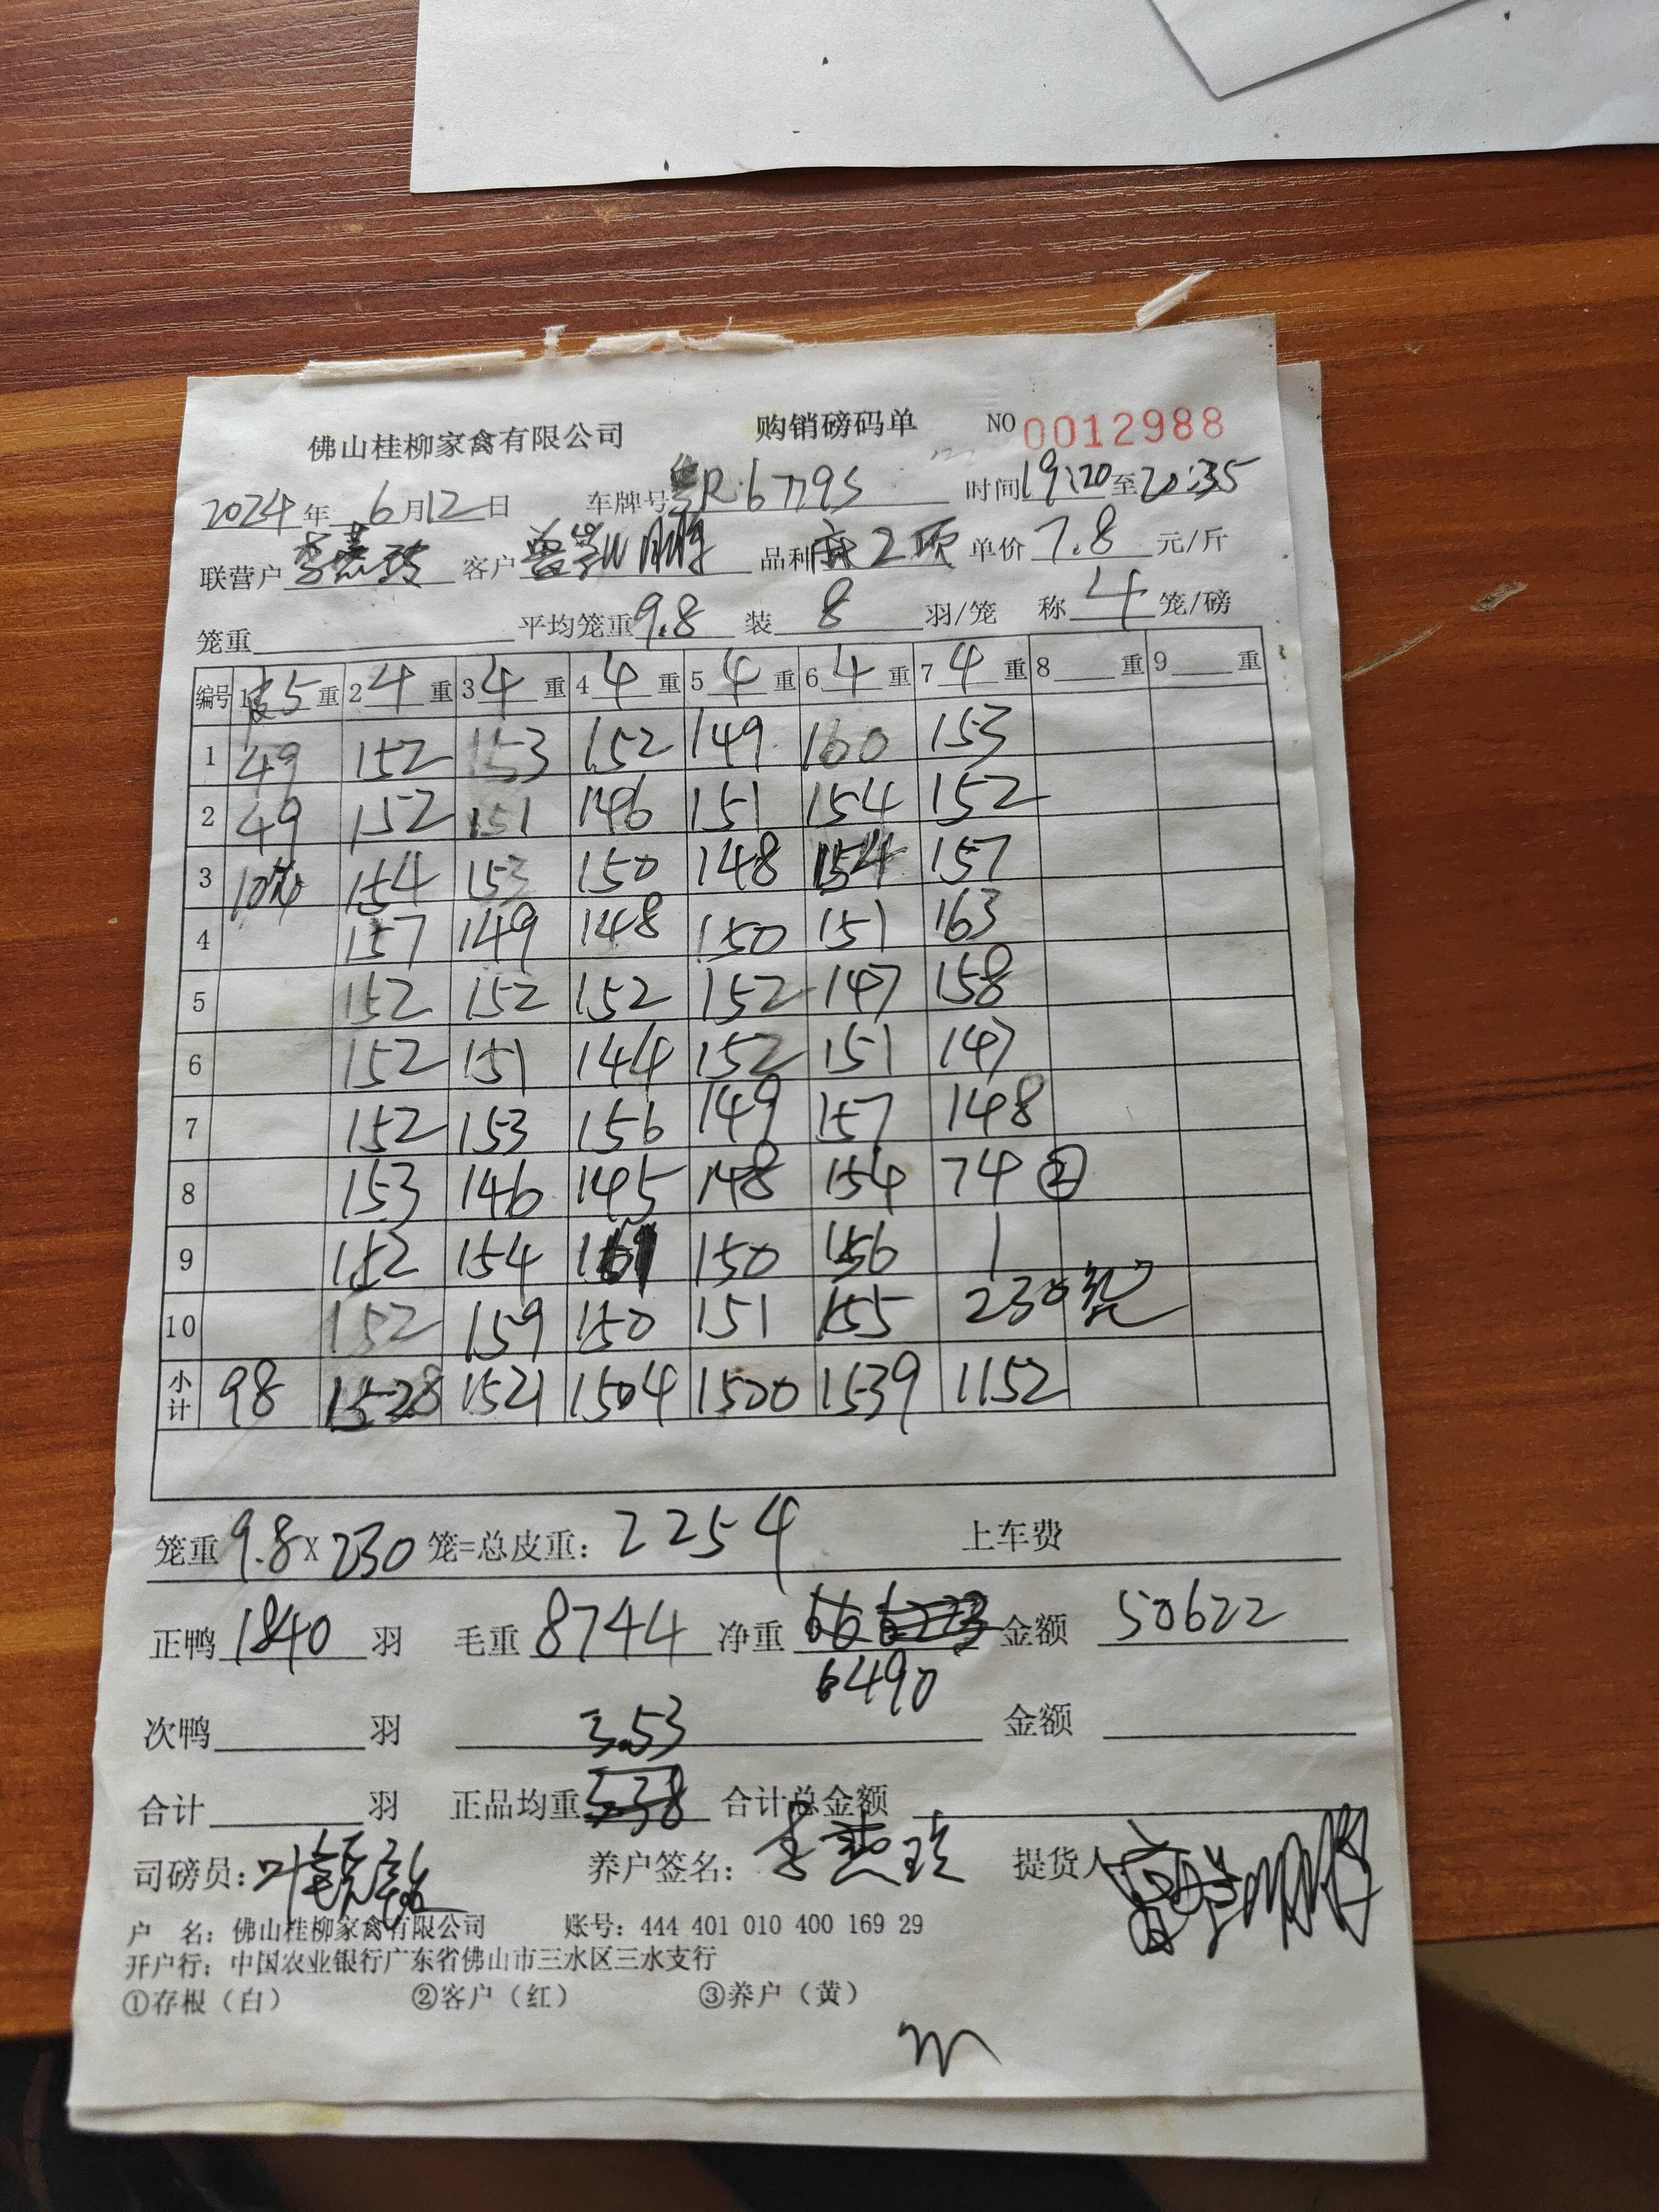 佛山桂柳家禽有限公司 购销磅码单 NO 0012988
2024年 6月12日 车牌号 粤R·6779S 时间19:20至20:35
联营户 客户 品种 单价 7.8 元/斤
笼重 平均笼重9.8 装 8 羽/笼 称 4 笼/磅
编号 1皮5重 2 4 重 3 4 重 4 4 重 5 4 重 6 4 重 7 4 重 8 重 9 重
1 49 152 153 152 149 160 153
2 49 152 151 146 151 154 152
3 10 154 153 150 148 154 157
4 157 149 148 150 151 163
5 152 152 152 152 147 158
6 152 151 144 152 151 147
7 152 153 156 149 157 148
8 153 146 145 148 154 74 ②
9 152 154 161 150 156 1
10 152 159 150 151 155 230笼
小计 98 1528 1521 1504 1500 1539 1152
笼重9.8×230笼=总皮重: 2254 上车费
正鸭1840羽 毛重8744 净重 金额 50622
6490
次鸭 羽 3.53 金额
合计 羽 正品均重 合计总金额
司磅员: 养户签名: 提货人
户 名: 佛山桂柳家禽有限公司 账号: 444 401 010 400 169 29
开户行: 中国农业银行广东省佛山市三水区三水支行
①存根(白) ②客户(红) ③养户(黄)